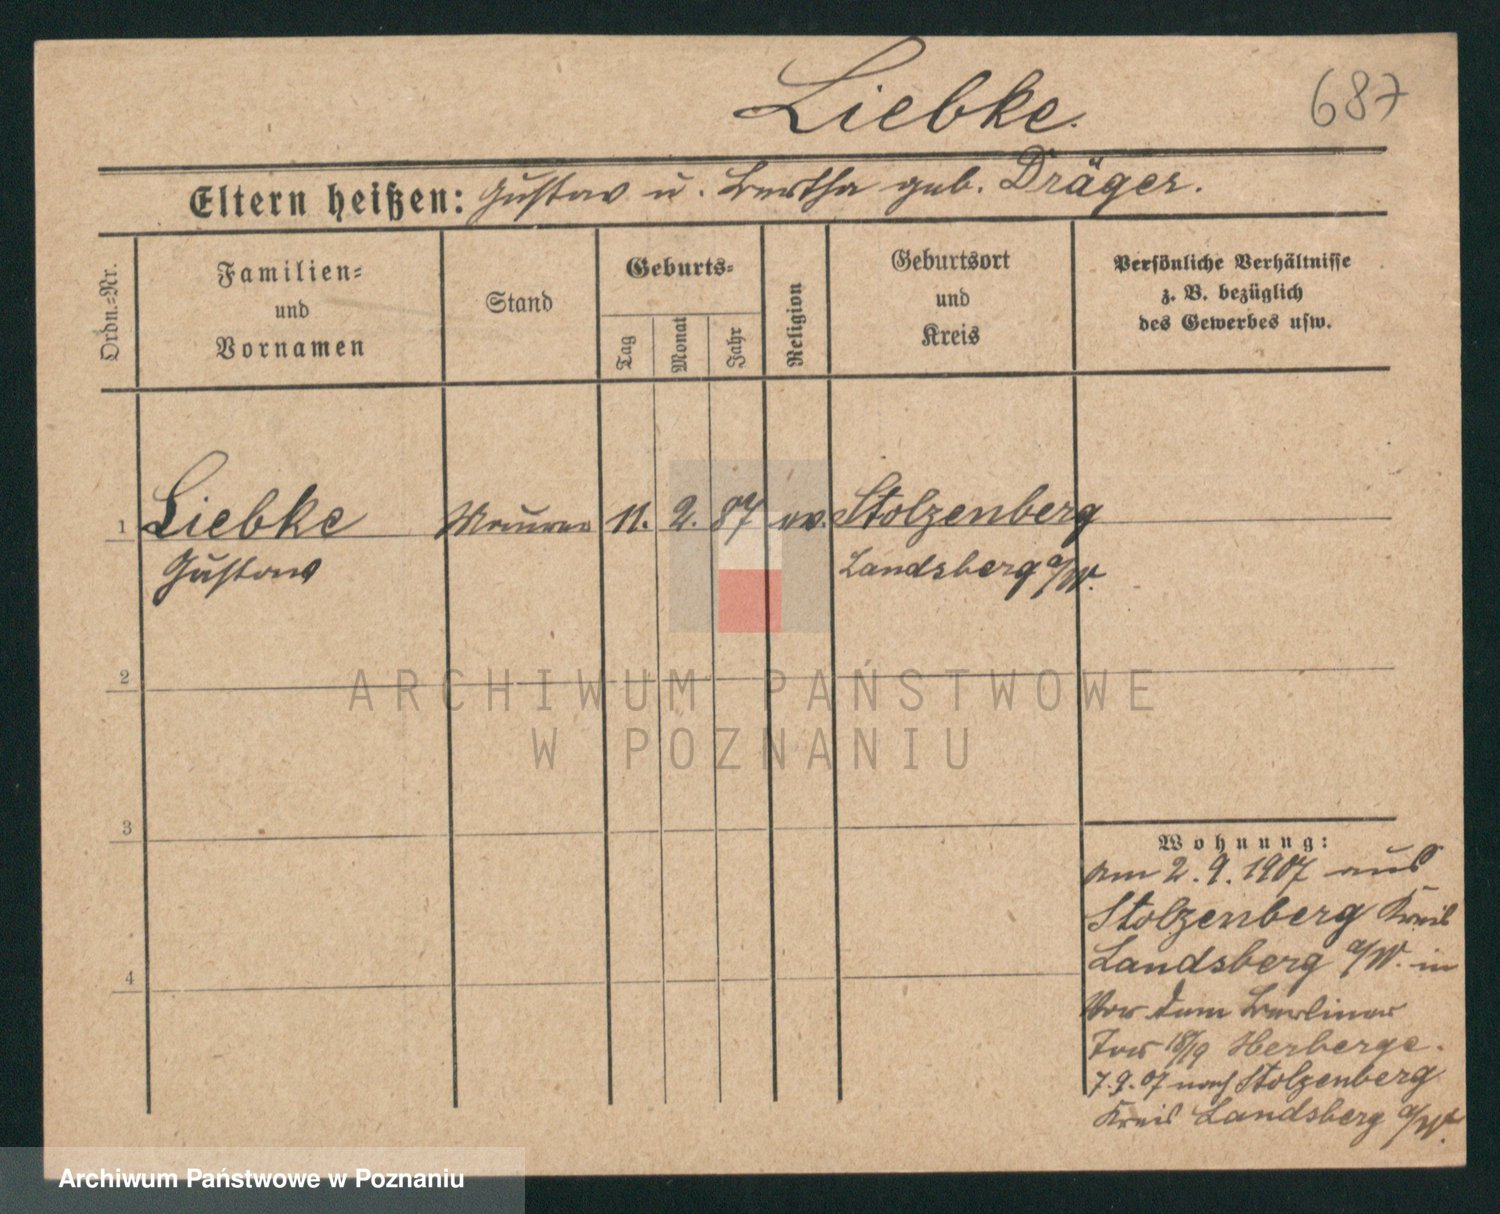 Liebke.
687
Eltern heißen: Gustav u. Bertha geb. Dräger.
Ordn.=Nr.
Familien=
und
Vornamen
Stand
Geburts=
Tag
Monat
Jahr
Religion
Geburtsort
und
Kreis
Persönliche Verhältnisse
z. B. bezüglich
des Gewerbes usw.
1 Liebke Maurer 11. 2. 87 ev. Stolzenberg
Gustav Landsberg a/W.
2
ARCHIWUM PAŃSTWOWE
W POZNANIU
3
Wohnung:
am 2.9.1907 aus
Stolzenberg Kreis
Landsberg a/W. in
Vor dem Berliner
Tor 18/19 Herberge.
7.9.07 nach Stolzenberg
Kreis Landsberg a/W.
4
Archiwum Państwowe w Poznaniu